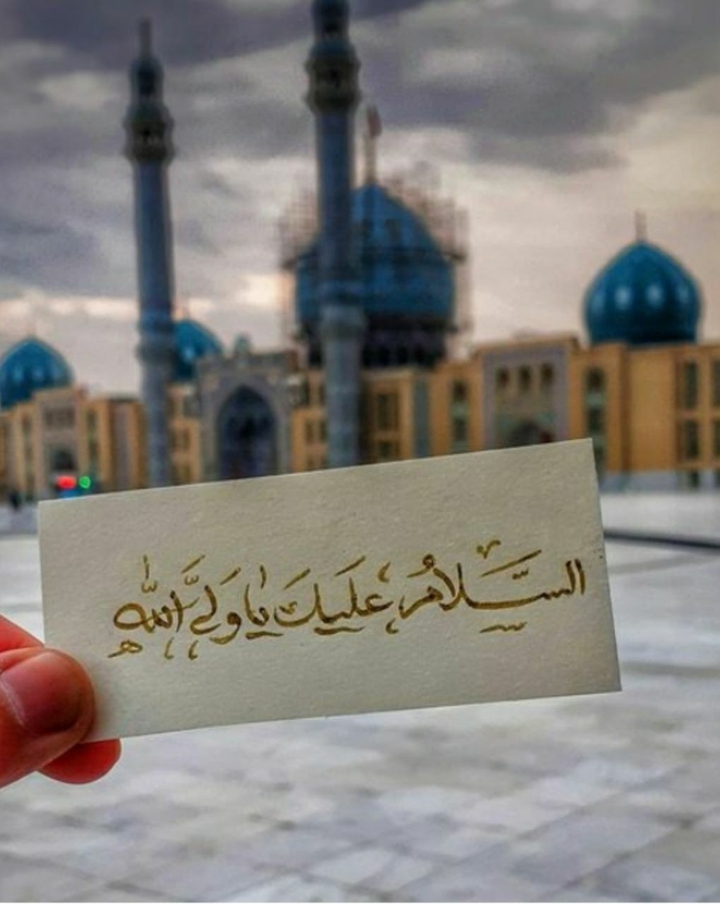 السَّلامُ عَلَيكَ يا وَلِيَّ اللّٰه